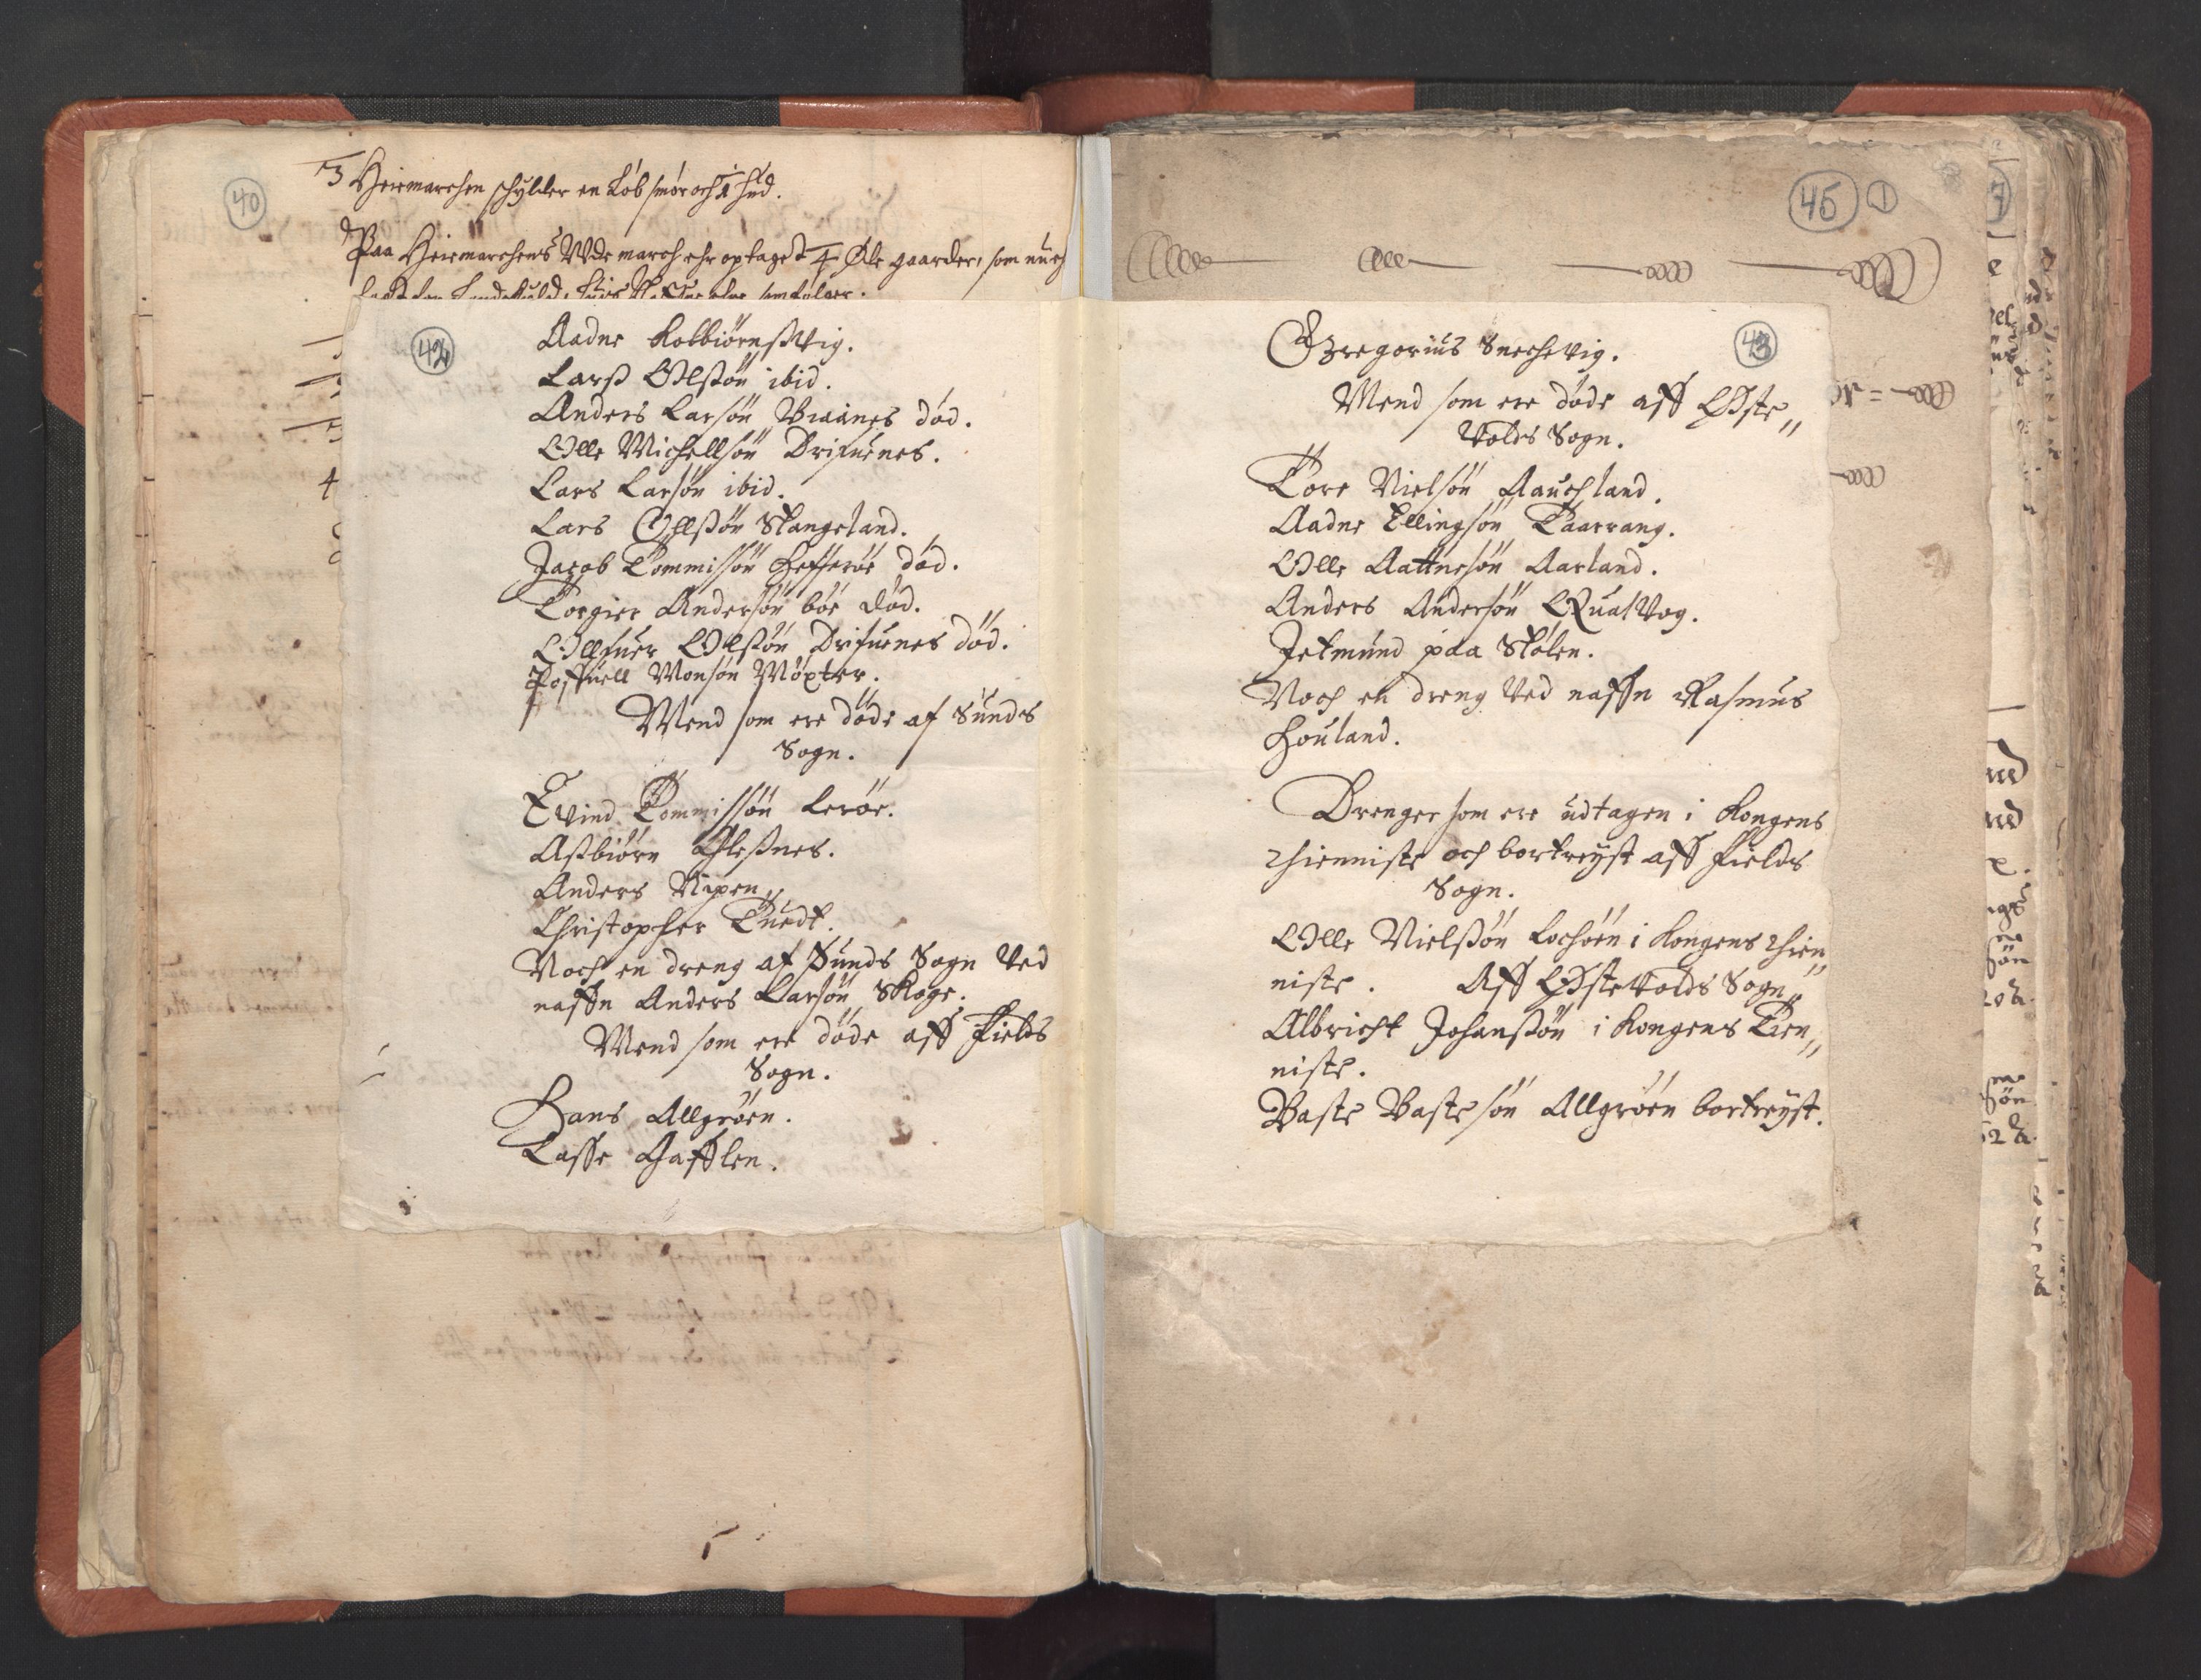 40
3 Heiemarchen schylder en Løb smør och 1 hud.
Paa Heiemarchens Vde march ehr optaget 4 Øde gaarder, som
42
Aadne Kolbiørnßvig.
Larß Olßøn ibid.
Anders Larsøn Vinnes død.
Olle Michellsøn Drifuenes.
Lars Larsøn ibid.
Lars Ollßøn Stangeland.
Jacob Tommissøn Hefferøe død.
Torgier Andersøn bøe død.
Ollfuer Olßøn Drifuenes død.
Poffuell Monsøn Møxter.
Mend som ere døde af Sunds
Sogn.
Evind Tommissøn Lerøe.
Aßbiørn Gleßnes.
Anders Nipen
Christopher Tuedt.
Noch en dreng af Sunds Sogn Ved
naffn Anders Larsøn Skoge.
Mend som ere døde aff Fields
Sogn.
Hans Allgrøen.
Lasse Gafflen.
45 1
43
Gregorius Snechevig.
Mend som ere døde aff Øste„
Volds Sogn.
Tore Nielsøn Rauchland.
Aadne Ellingsøn Taarrang.
Olle Aattnesøn Aarland.
Anders Andersøn QualVog.
Jetmund paa Stølen.
Noch en dreng Ved naffn Rasmus
Houland.
Drenger som ere udtagen i Kongens
thienniste och bortreyst aff Fields
Sogn.
Olle Nielßøn Lochøen i Kongens thien„
niste. Aff ØsteVolds Sogn„
Albricht Johanßøn i Kongens Tien„
niste.
Baste Bastesøn Allgrøen bortreyst.